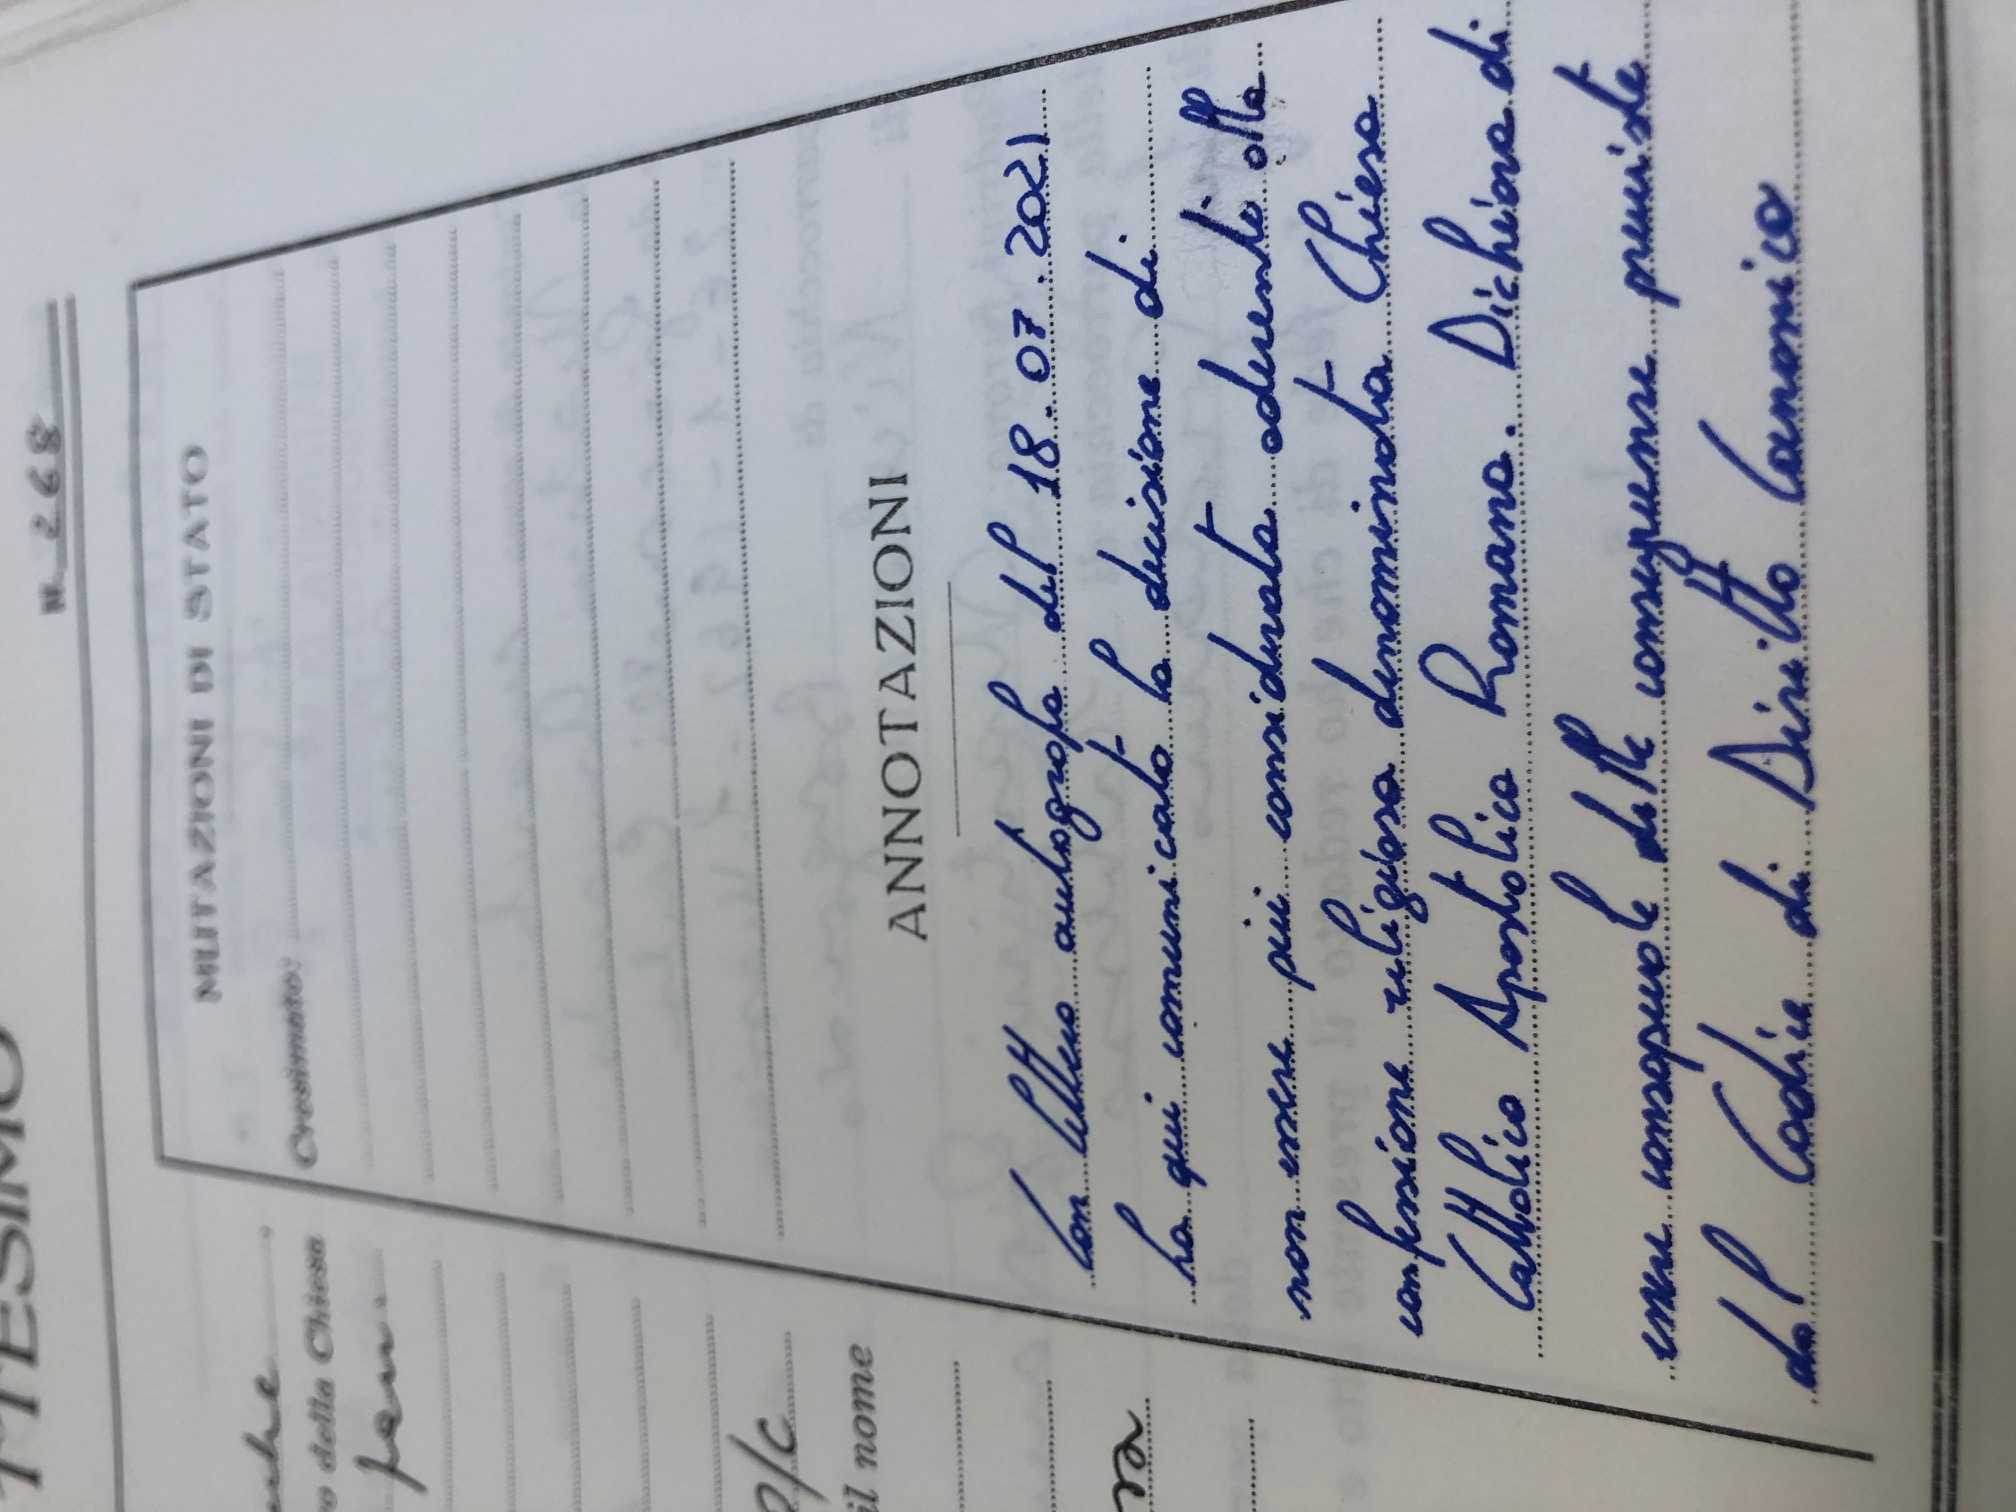 TESIMO
N. 268
MUTAZIONI DI STATO
Cresimato:
ANNOTAZIONI
Con lettera autografa del 18.07.2021
ha qui comunicato la decisione di
non essere più considerata aderente alla
confessione religiosa denominata Chiesa
Cattolica Apostolica Romana. Dichiara di
essere consapevole delle conseguenze previste
dal Codice di Diritto Canonico
della Chiesa
P/C
il nome